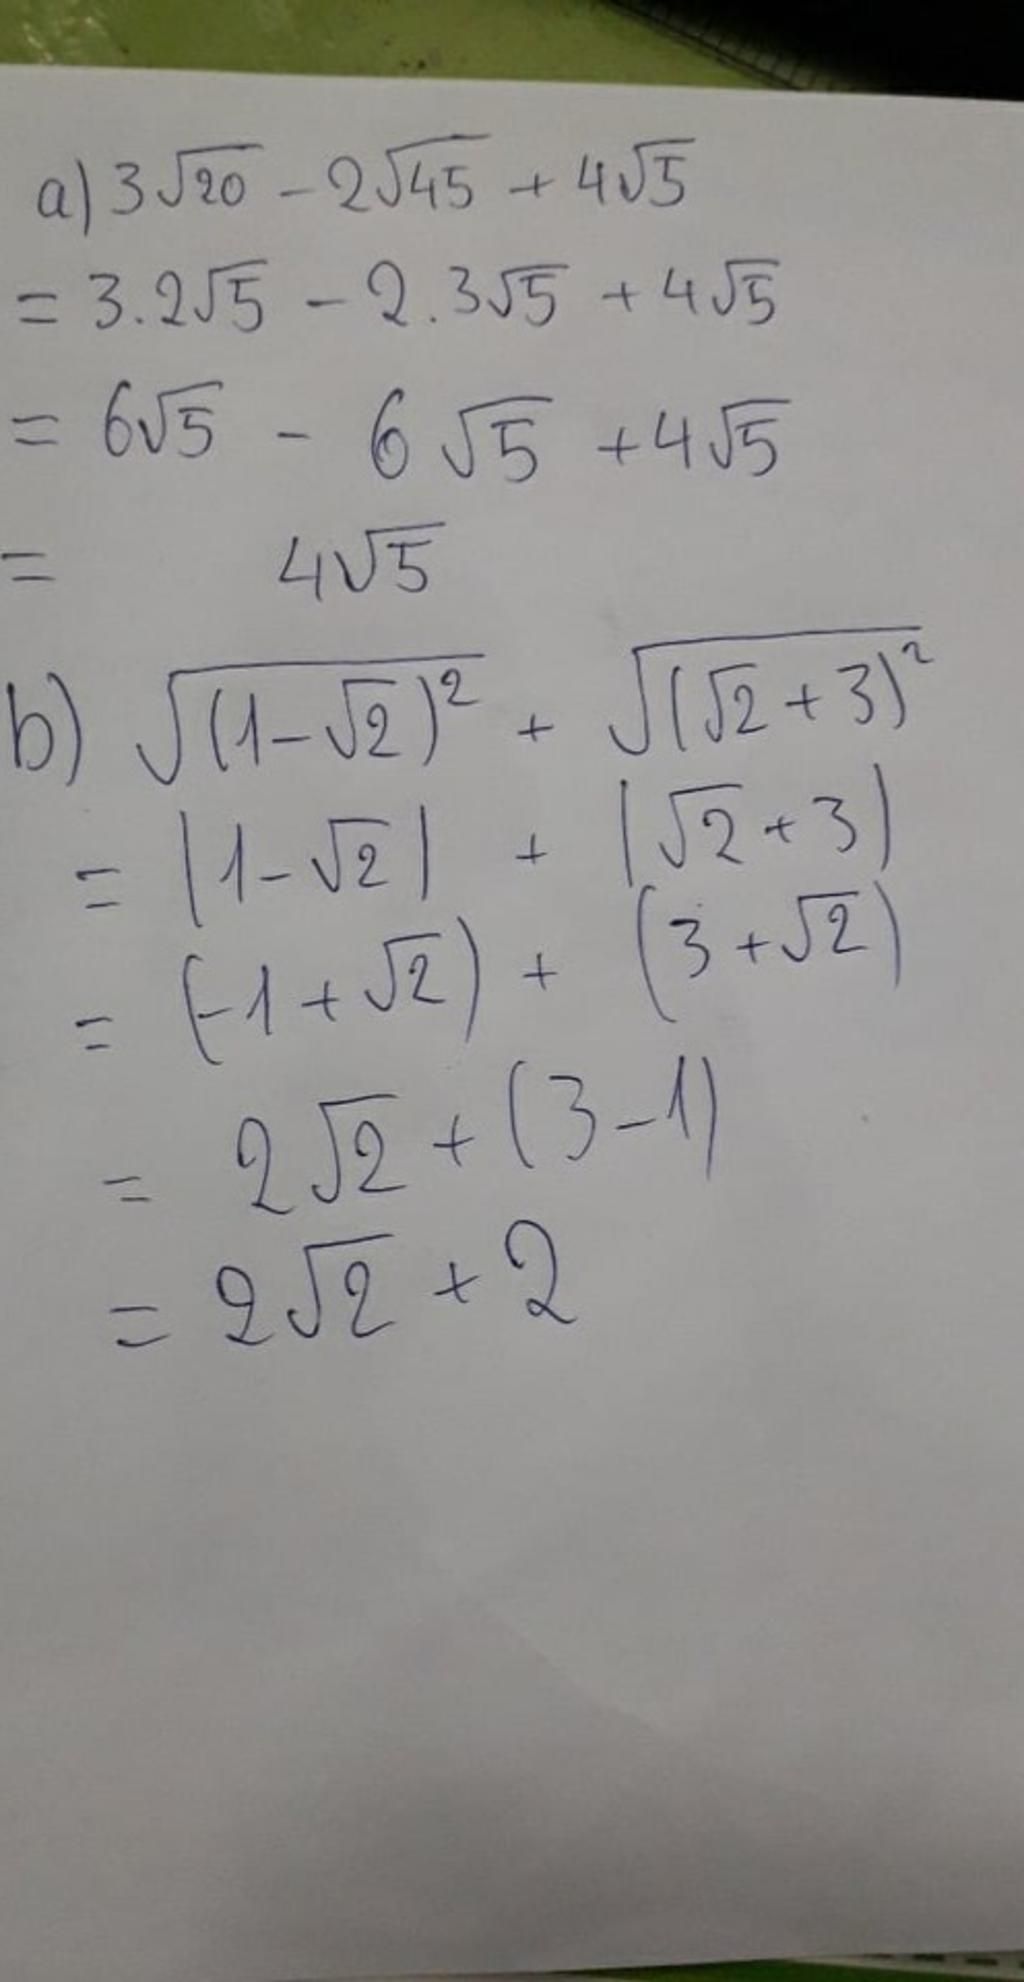 a) 3√20 - 2√45 + 4√5
= 3.2√5 - 2.3√5 + 4√5
= 6√5 - 6√5 + 4√5
= 4√5
b) √(1-√2)² + √(√2+3)²
= |1-√2| + |√2+3|
= (-1+√2) + (3+√2)
= 2√2 + (3-1)
= 2√2 + 2